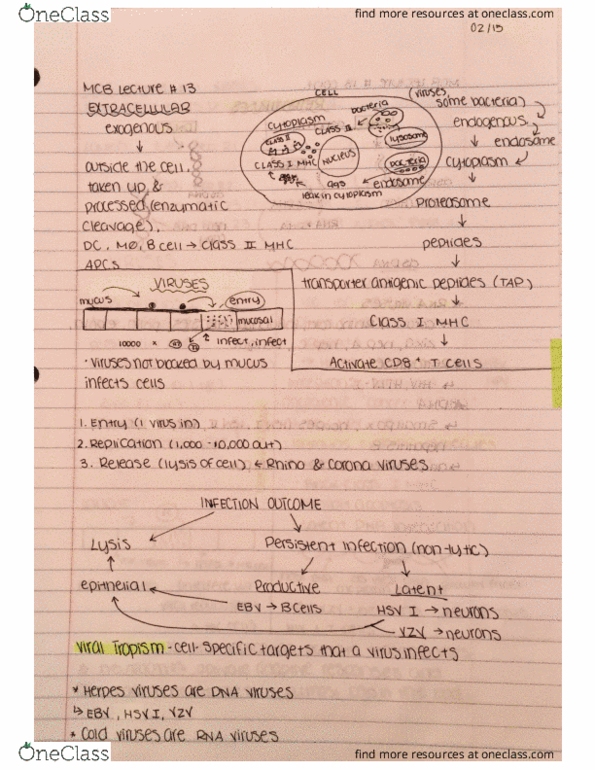 OneClass
find more resources at oneclass.com
02/15
MCB Lecture # 13
EXTRACELLULAR
exogenous
outside the cell.
taken up &
processed (enzymatic
cleavage).
DC, MØ, B cell → Class II MHC
APCs
CELL
cytoplasm
bacteria
CLASS II
CLASS II
lysosome
CLASS I MHC
NUCLEUS
bacteria
ags
endosome
leak in cytoplasm
(viruses,
some bacteria)
endogenous
endosome
cytoplasm
proteasome
peptides
transporter antigenic peptides (TAP)
Class I MHC
Activate CD8+ T cells
VIRUSES
mucus
entry
mucosal
10000 x
infect, infect
· viruses not blocked by mucus
infects cells
1. Entry (1 virus in)
2. Replication (1,000 - 10,000 out)
3. Release (lysis of cell) ← Rhino & Corona viruses
INFECTION OUTCOME
Lysis
Persistent infection (non-lytic)
epithelial
Productive
Latent
EBV → B cells
HSV I → neurons
VZV → neurons
Viral Tropism - cell-specific targets that a virus infects
* Herpes viruses are DNA viruses
↳ EBV, HSV I, VZV
* Cold viruses are RNA viruses
OneClass
find more resources at oneclass.com